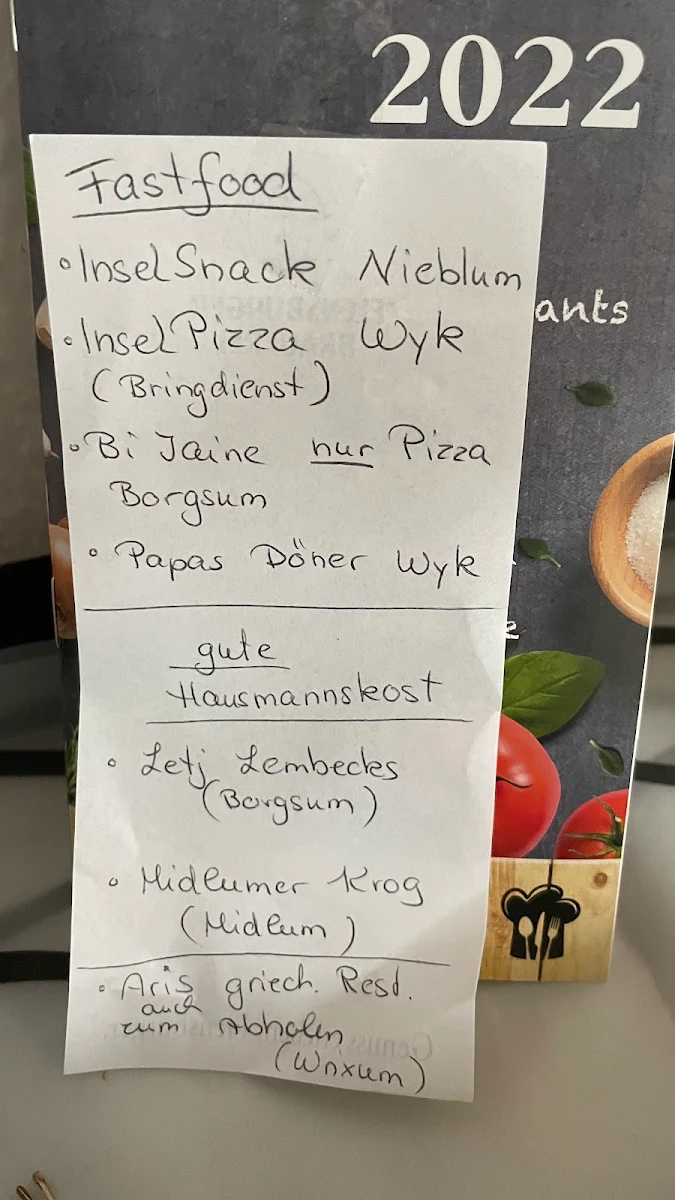 2022
ants
e
Fastfood
InselSnack Nieblum
InselPizza Wyk
(Bringdienst)
Bi Jaine nur Pizza
Borgsum
Papas Döner Wyk
gute
Hausmannskost
Letj Lembecks
(Borgsum)
Midlumer Krog
(Midlum)
Aris griech. Rest.
auch
zum Abholen
(Wnxum)